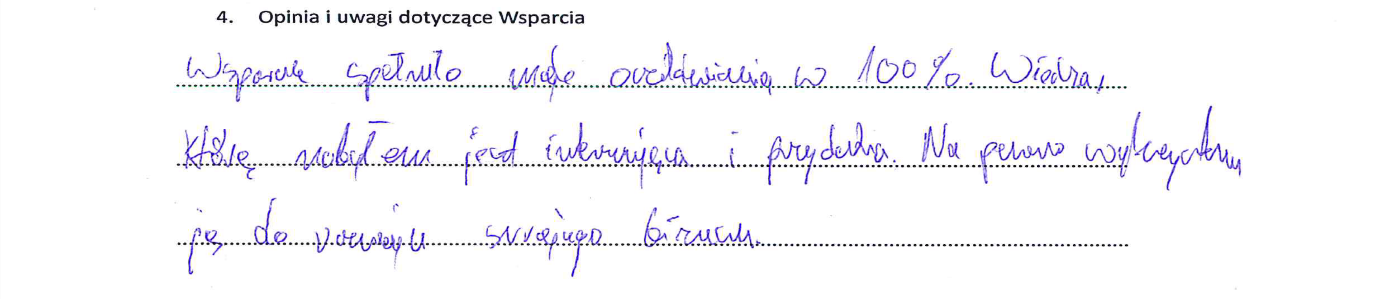 4. Opinia i uwagi dotyczące Wsparcia
Wsparcie spełniło moje oczekiwania w 100%. Wiedza,
którą nabyłem jest interesująca i przydatna. Na pewno wykorzystam
ją do rozwoju swojego biznesu.